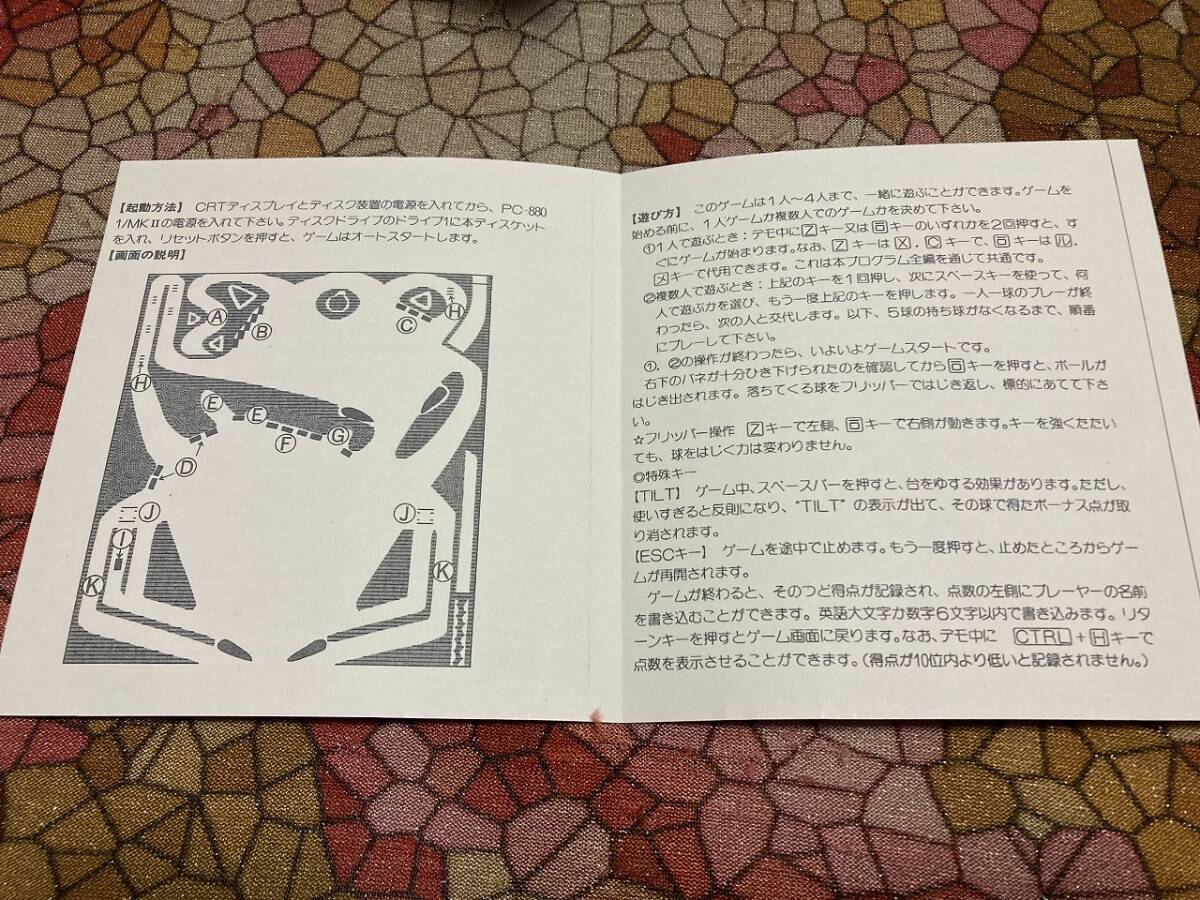 【起動方法】 CRTディスプレイとディスク装置の電源を入れてから、PC-880
1/MKⅡの電源を入れて下さい。ディスクドライブのドライブ1に本ディスケット
を入れ、リセットボタンを押すと、ゲームはオートスタートします。
【画面の説明】
Ⓐ
Ⓑ
Ⓒ
Ⓗ
Ⓗ
Ⓔ
Ⓔ
Ⓕ
Ⓖ
Ⓓ
Ⓙ
Ⓙ
Ⓘ
Ⓚ
Ⓚ
【遊び方】 このゲームは1人～4人まで、一緒に遊ぶことができます。ゲームを
始める前に、1人ゲームか複数人でのゲームかを決めて下さい。
①1人で遊ぶとき：デモ中に[Z]キー又は[ロ]キーのいずれかを2回押すと、す
ぐにゲームが始まります。なお、[Z]キーは[X]，[C]キーで、[ロ]キーは[ル]，
[メ]キーで代用できます。これは本プログラム全編を通じて共通です。
②複数人で遊ぶとき：上記のキーを1回押し、次にスペースキーを使って、何
人で遊ぶかを選び、もう一度上記のキーを押します。一人一球のプレーが終
わったら、次の人と交代します。以下、5球の持ち球がなくなるまで、順番
にプレーして下さい。
①，②の操作が終わったら、いよいよゲームスタートです。
右下のバネが十分ひき下げられたのを確認してから[ロ]キーを押すと、ボールが
はじき出されます。落ちてくる球をフリッパーではじき返し、標的にあてて下さ
い。
☆フリッパー操作 [Z]キーで左側、[ロ]キーで右側が動きます。キーを強くたたい
ても、球をはじく力は変わりません。
◎特殊キー
【TILT】 ゲーム中、スペースバーを押すと、台をゆする効果があります。ただし、
使いすぎると反則になり、“TILT”の表示が出て、その球で得たボーナス点が取
り消されます。
【ESCキー】 ゲームを途中で止めます。もう一度押すと、止めたところからゲー
ムが再開されます。
ゲームが終わると、そのつど得点が記録され、点数の左側にプレーヤーの名前
を書き込むことができます。英語大文字か数字6文字以内で書き込みます。リタ
ーンキーを押すとゲーム画面に戻ります。なお、デモ中に [CTRL]+[H]キーで
点数を表示させることができます。（得点が10位内より低いと記録されません。）